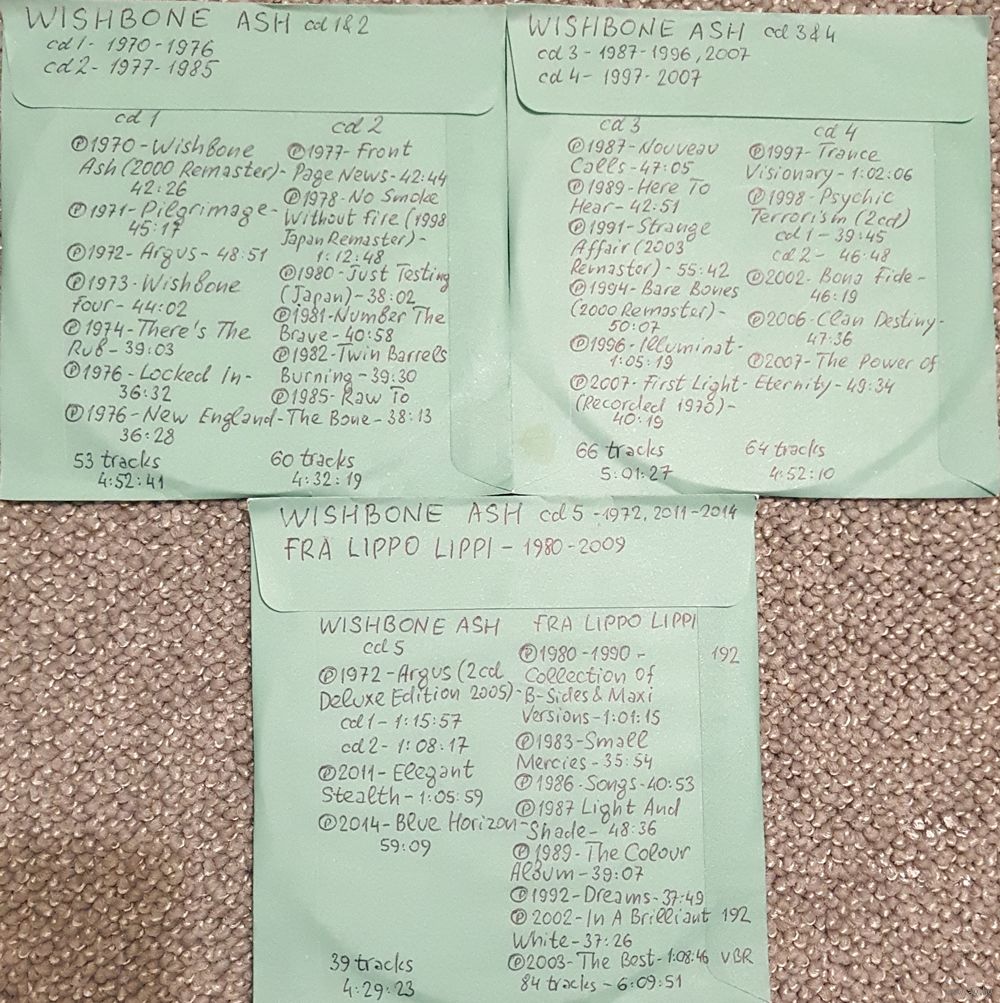 WISHBONE ASH cd 1&2
cd1- 1970-1976
cd2- 1977-1985
cd 1
Ⓟ1970-Wishbone
Ash (2000 Remaster)-
42:26
Ⓟ1971-Pilgrimage-
45:17
Ⓟ1972-Argus-48:51
Ⓟ1973-Wishbone
Four-44:02
Ⓟ1974-There's The
Rub-39:03
Ⓟ1976-Locked In-
36:32
Ⓟ1976-New England-
36:28
53 tracks
4:52:41
cd 2
Ⓟ1977-Front
Page News-42:44
Ⓟ1978-No Smoke
Without Fire (1998
Japan Remaster)-
1:12:48
Ⓟ1980-Just Testing
(Japan)-38:02
Ⓟ1981-Number The
Brave-40:58
Ⓟ1982-Twin Barrels
Burning-39:30
Ⓟ1985-Raw To
The Bone-38:13
60 tracks
4:32:19
WISHBONE ASH cd 3&4
cd 3-1987-1996, 2007
cd 4-1997-2007
cd 3
Ⓟ1987-Nouveau
Calls-47:05
Ⓟ1989-Here To
Hear-42:51
Ⓟ1991-Strange
Affair (2003
Remaster)-55:42
Ⓟ1994-Bare Bones
(2000 Remaster)-
50:07
Ⓟ1996-Illuminat-
1:05:19
Ⓟ2007-First Light-
(Recorded 1970)-
40:19
66 tracks
5:01:27
cd 4
Ⓟ1997-Trance
Visionary-1:02:06
Ⓟ1998-Psychic
Terrorism (2cd)
cd 1-39:45
cd 2-46:48
Ⓟ2002-Bona Fide-
46:19
Ⓟ2006-Clan Destiny-
47:36
Ⓟ2007-The Power of
Eternity-49:34
64 tracks
4:52:10
WISHBONE ASH cd 5 -1972, 2011-2014
FRA LIPPO LIPPI-1980-2009
WISHBONE ASH
cd 5
Ⓟ1972-Argus (2cd
Deluxe Edition 2005)-
cd1-1:15:57
cd2-1:08:17
Ⓟ2011-Elegant
Stealth-1:05:59
Ⓟ2014-Blue Horizon-
59:09
39 tracks
4:29:23
FRA LIPPO LIPPI
Ⓟ1980-1990- 192
Collection Of
B-Sides & Maxi
Versions-1:01:15
Ⓟ1983-Small
Mercies-35:54
Ⓟ1986-Songs-40:53
Ⓟ1987 Light And
Shade-48:36
Ⓟ1989-The Colour
Album-39:07
Ⓟ1992-Dreams-37:49
Ⓟ2002-In A Brilliant 192
White-37:26
Ⓟ2003-The Best-1:08:46 VBR
84 tracks-6:09:51